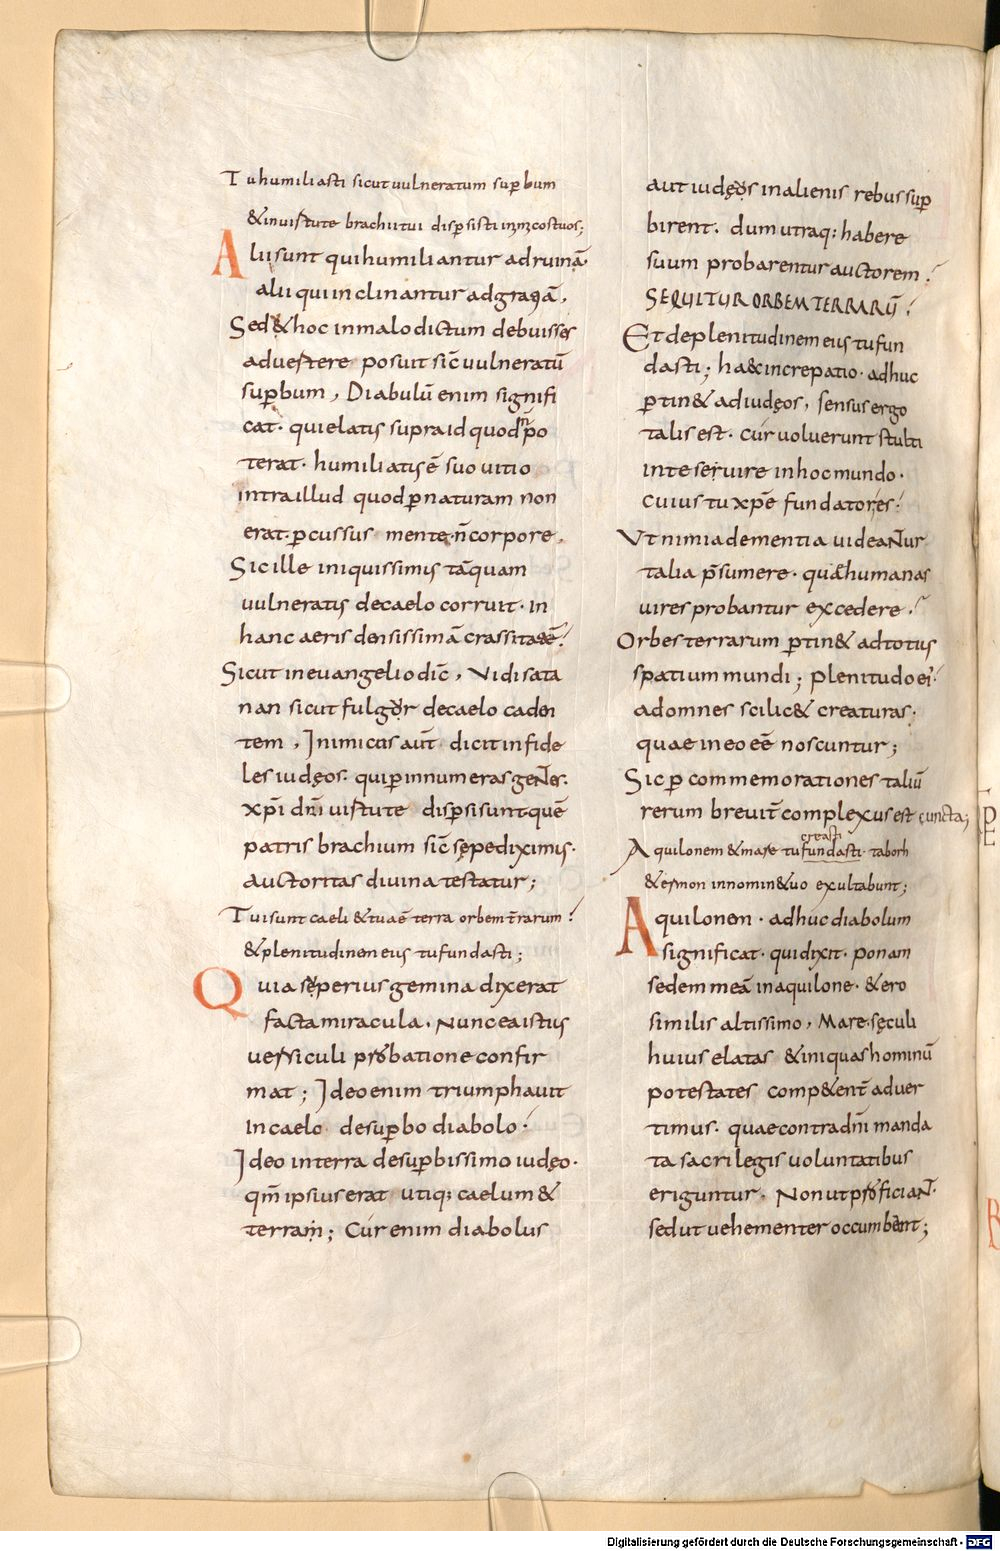 Tu humiliasti sicut uulneratum sup̄bum
& in uirtute brachii tui disp̄sisti inimicos tuos;
Alii sunt qui humiliantur ad ruinā.
alii qui inclinantur ad gratiā,
Sed & hoc in malo dictum debuisset
aduertere posuit sic̄ uulneratū
sup̄bum, Diabulū enim signifi
cat. qui elatis supra id quod n̄ po
terat. humiliatis ē suo uitio
intra illud quod p̄ naturam non
erat. p̄cussus mente. n̄ corpore.
Sic ille iniquissimis tāquam
uulneratis de caelo corruit. in
hanc aeris densissimā crassitatē.
Sicut in euangelio dic̄, Vidi sata
nan sicut fulgor de caelo caden
tem, Inimicus aūt dicit infide
les iudęos. qui p̄ innumeras gentes.
xp̄i dn̄i uirtute disp̄si sunt. quē
patris brachium sic̄ sępe diximus.
auctoritas diuina testatur;
Tui sunt caeli & tua ē terra orbem t̄rarum
& plenitudinem eius tu fundasti;
Quia sęperius gemina dixerat
facta miracula. Nunc ea istius
uersiculi probatione confir
mat; Ideo enim triumphauit
In caelo de sup̄bo diabolo.
Ideo in terra de sup̄bissimo iudęo.
qm̄ ipsius erat utiq; caelum &
terram; Cur enim diabolus
aut iudęos in alienis rebus sup̄
birent. dum utraq: habere
suum probarentur auctorem?
SEQUITUR ORBEM TERRARŪ
Et de plenitudinem eius tu fun
dasti; ha&c increpatio. adhuc
p̄tin& ad iudęos, sensus ergo
talis est. Cur uoluerunt stulti
in te seruire in hoc mundo.
cuius tu xp̄e fundator es?
Vt nimia dementia uideantur
talia p̄sumere. quae humanas
uires probantur excedere.
Orbes terrarum p̄tin& ad totius
spatium mundi; plenitudo ei'
ad omnes scilic& creaturas.
quae in eo eē noscuntur;
Sic p̄ commemorationes taliū
rerum breuit̄ complexus est cuncta;
creasti
Aquilonem & mare tu fundasti. tabor
& ermon in nomine tuo exultabunt;
Aquilonem. adhuc diabolum
significat. qui dixit. ponam
sedem meā in aquilone. & ero
similis altissimo, Mare. sęculi
huius elatas & iniquas hominū
potestates comp&ent̄ aduer
timus. quae contra dn̄i manda
ta sacrilegis uoluntatibus
eriguntur. Non ut proficiant.
sed ut uehementer occumbant;
Digitalisierung gefördert durch die Deutsche Forschungsgemeinschaft - DFG